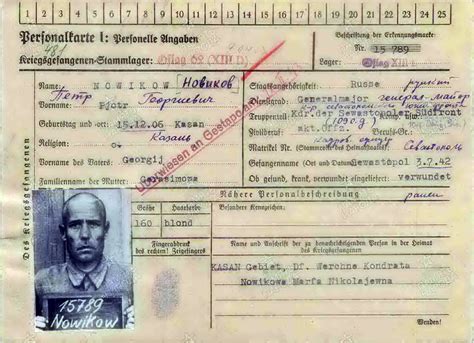 1 2 3 4 5 6 7 8 9 10 11 12 13 14 15 16 17 18 19 20 21 22 23 24 25
Personalkarte I: Personelle Angaben
Beschriftung der Erkennungsmarke:
Kriegsgefangenen-Stammlager: Oflag 62 (XIII D)
Nr. 15 789
Lager: Oflag XIII
Des Kriegsgefangenen
Name: NOWIKOW Новиков
Staatsangehörigkeit: Russe
Петр Георгиевич
Vorname: Pjotr
Dienstgrad: Generalmajor генерал-майор
Kdr.der Sewastopoler Südfront
Geburtstag und -ort: 15.12.06 Kasan
Казань
Religion:
Zivilberuf: akt.Offz.
Überwiesen an Gestapo
Vorname des Vaters: Georgij
Gefangennahme (Ort und Datum): Sewastopol 3.7.42
Familienname der Mutter: Gerasimowa
Ob gesund, krank, verwundet eingeliefert: verwundet
ранен
Nähere Personalbeschreibung
Größe Haarfarbe Besondere Kennzeichen:
160 blond
Fingerabdruck
des rechten! Zeigefingers
Name und Anschrift der zu benachrichtigenden Person in der Heimat
des Kriegsgefangenen
KASAN Gebiet, Df. Werchne Kondrata
Nowikowa Marfa Nikolajewna
15789
Nowikow